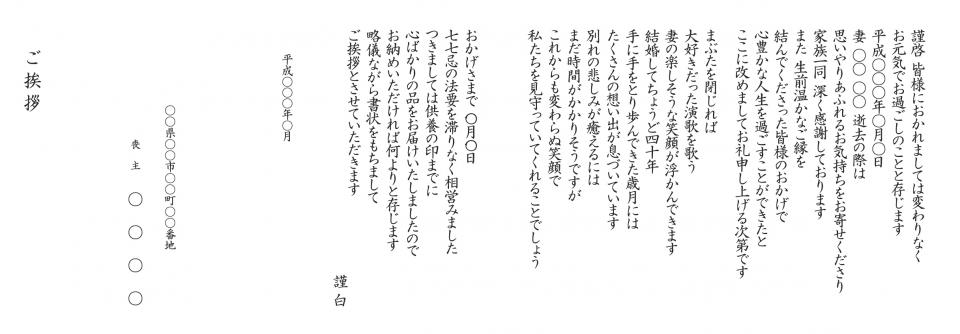 謹啓 皆様におかれましては変わりなく
お元気でお過ごしのことと存じます
平成〇〇〇年〇月〇日
妻〇〇〇〇 逝去の際は
思いやりあふれるお気持ちをお寄せくださり
家族一同 深く感謝しております
また 生前温かなご縁を
結んでくださった皆様のおかげで
心豊かな人生を過ごすことができたと
ここに改めましてお礼申し上げる次第です
まぶたを閉じれば
大好きだった演歌を歌う
妻の楽しそうな笑顔が浮かんできます
結婚してちょうど四十年
手に手をとり歩んできた歳月には
たくさんの想い出が息づいています
別れの悲しみが癒えるには
まだ時間がかかりそうですが
これからも変わらぬ笑顔で
私たちを見守っていてくれることでしょう
おかげさまで 〇月〇日
七七忌の法要を滞りなく相営みました
つきましては供養の印までに
心ばかりの品をお届けいたしましたので
お納めいただければ何よりと存じます
略儀ながら書状をもちまして
ご挨拶とさせていただきます
謹白
平成〇〇〇年〇月
〇〇県〇〇市〇〇町〇〇番地
喪主 〇〇〇〇
ご挨拶